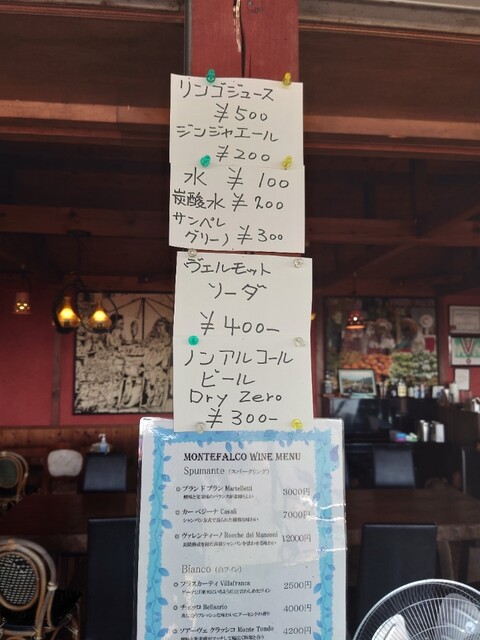 リンゴジュース
¥500
ジンジャエール
¥200
水 ¥100
炭酸水 ¥200
サンペレ
グリーノ ¥300
ヴェルモット
ソーダ
¥400-
ノンアルコール
ビール
Dry Zero
¥300-
MONTEFALCO WINE MENU
Spumante (スパークリング)
ブランド ブラン Martelletti 3000円
カー ベジーナ Casali 7000円
ヴァレンティーノ Rocche dei Manzoni 12000円
Bianco (白ワイン)
フラスカーティ Villafranca 2500円
チェッロ Bellisario 4000円
ソアーヴェ クラッシコ Monte Tondo 4200円